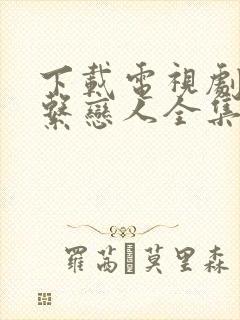 下載電視劇
繫戀人全集
羅茜·莫里森